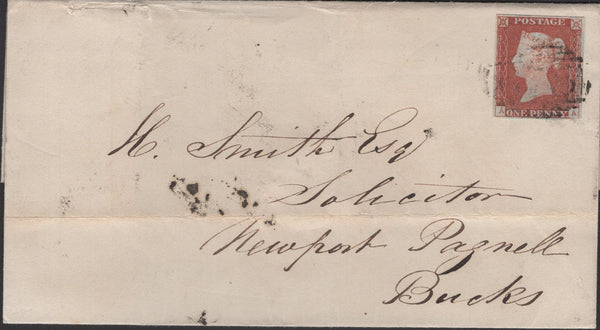 POSTAGE
ONE PENNY
A A
H. Smith Esq
Solicitor
Newport Pagnell
Bucks